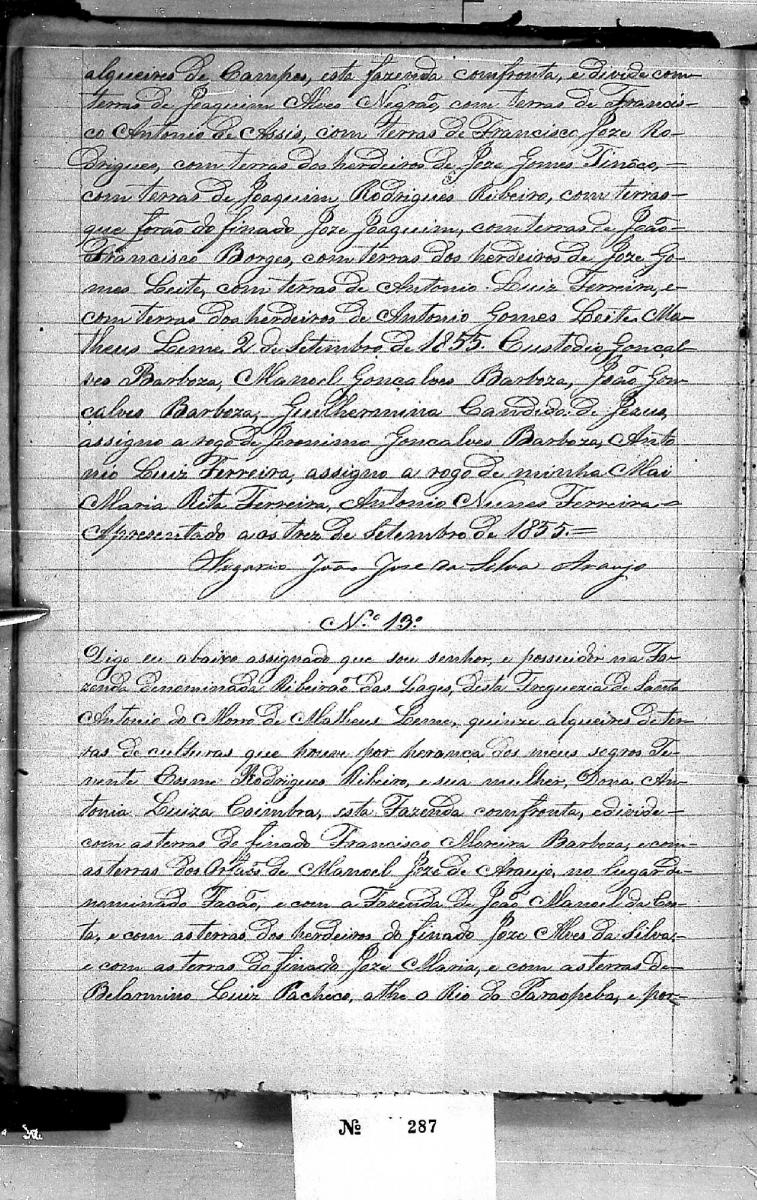 alqueires de Campos, esta fazenda comfronta, e divide com
terras de Joaquim Alves Negraõ, com terras de Francis-
co Antonio de Assis, com terras de Francisco Joze Ro-
drigues, com terras dos herdeiros de Joze Gomes Tinôco, =
com terras de Joaquim Rodrigues Ribeiro, com terras =
que foraõ do finado Joze Joaquim, com terras de Joaõ =
Francisco Borges, com terras dos herdeiros de Joze Go-
mes Leite, com terras de Antonio Luiz Ferreira, e
com terras dos herdeiros de Antonio Gomes Leite. Ma-
theus Leme 2 de Setembro de 1855. Custodio Gonçal-
ves Barboza, Manoel Gonçalves Barboza, Joaõ Gon-
çalves Barboza, Guilhermina Candida de Jezus,
assigno a rogo de Jeronimo Gonçalves Barboza, Anto-
nio Luiz Ferreira, assigno a rogo de minha Mai
Maria Rita Ferreira, Antonio Nunes Ferreira =
Apresentado aos trez de Setembro de 1855. =
Vigario João Jose da Silva Araujo
N.º 13º
Digo eu abaixo assignado que sou senhor, e possuidor na Fa-
zenda denominada Ribeiraõ das Lages, desta Freguezia de Santo
Antonio do Morro de Matheus Leme, quinze alqueires de ter-
ras de culturas que houve por herança dos meus sogros Te-
nente Cosme Rodrigues Ribeiro, e sua mulher, Dona An-
tonia Luiza Coimbra, esta Fazenda comfronta, e divide =
com as terras do finado Francisco Moreira Barboza, e com
as terras dos Orfaõs de Manoel Joze de Araujo, no lugar de-
nominado Facaõ, e com a Fazenda de Joaõ Manoel da Cos-
ta, e com as terras dos herdeiros do finado Joze Alves da Silva,
e com as terras do finado Joze Maria, e com as terras de
Belarmino Luiz Pacheco, athe o Rio do Paraopeba, e por-
Nº 287